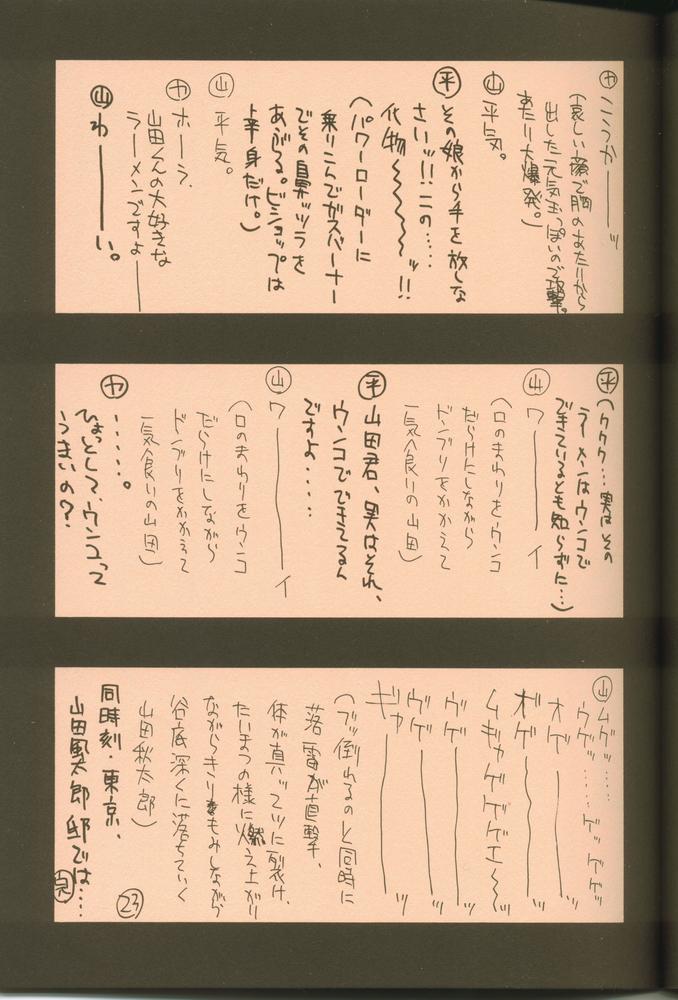 ヤ こうかーーッ
(哀しい顔で胸のあたりから
出した元気玉っぽいので攻撃。
あたり大爆発。)
山 平気。
平 その娘から手を放しな
さいッ!!この……
化物〜〜〜〜ッ!!
(パワーローダーに
乗りこんでガスバーナー
でその鼻ッツラを
あぶる。ビショップは
上半身だけ。)
山 平気。
ヤ ホーラ、
山田くんの大好きな
ラーメンですよーー
山 わーーい。
平 (ククク…実はその
ラーメンはウンコで
できているとも知らずに…)
山 ワーーイ
(口のまわりをウンコ
だらけにしながら
ドンブリをかかえて
一気食いの山田)
平 山田君、実はそれ、
ウンコでできてるん
ですよ……
山 ワーーーイ
(口のまわりをウンコ
だらけにしながら
ドンブリをかかえて
一気食いの山田)
ヤ ……。
ひょっとして、ウンコって
うまいの?
山 ムゲッ……
ウゲッ……ゲッゲゲッ
オゲーーッ
オゲーーッ
ムギャゲゲゲエ〜〜ッ
ウゲーーッ
ウゲーーッ
ギャーーッ
(ブッ倒れるのと同時に
落雷が直撃、
体が真ッ二ツに裂け、
たいまつの様に燃え上がり
ながらきりもみしながら
谷底深くに落ちていく
山田秋太郎)
同時刻・東京、
山田風太郎邸では……
完
23